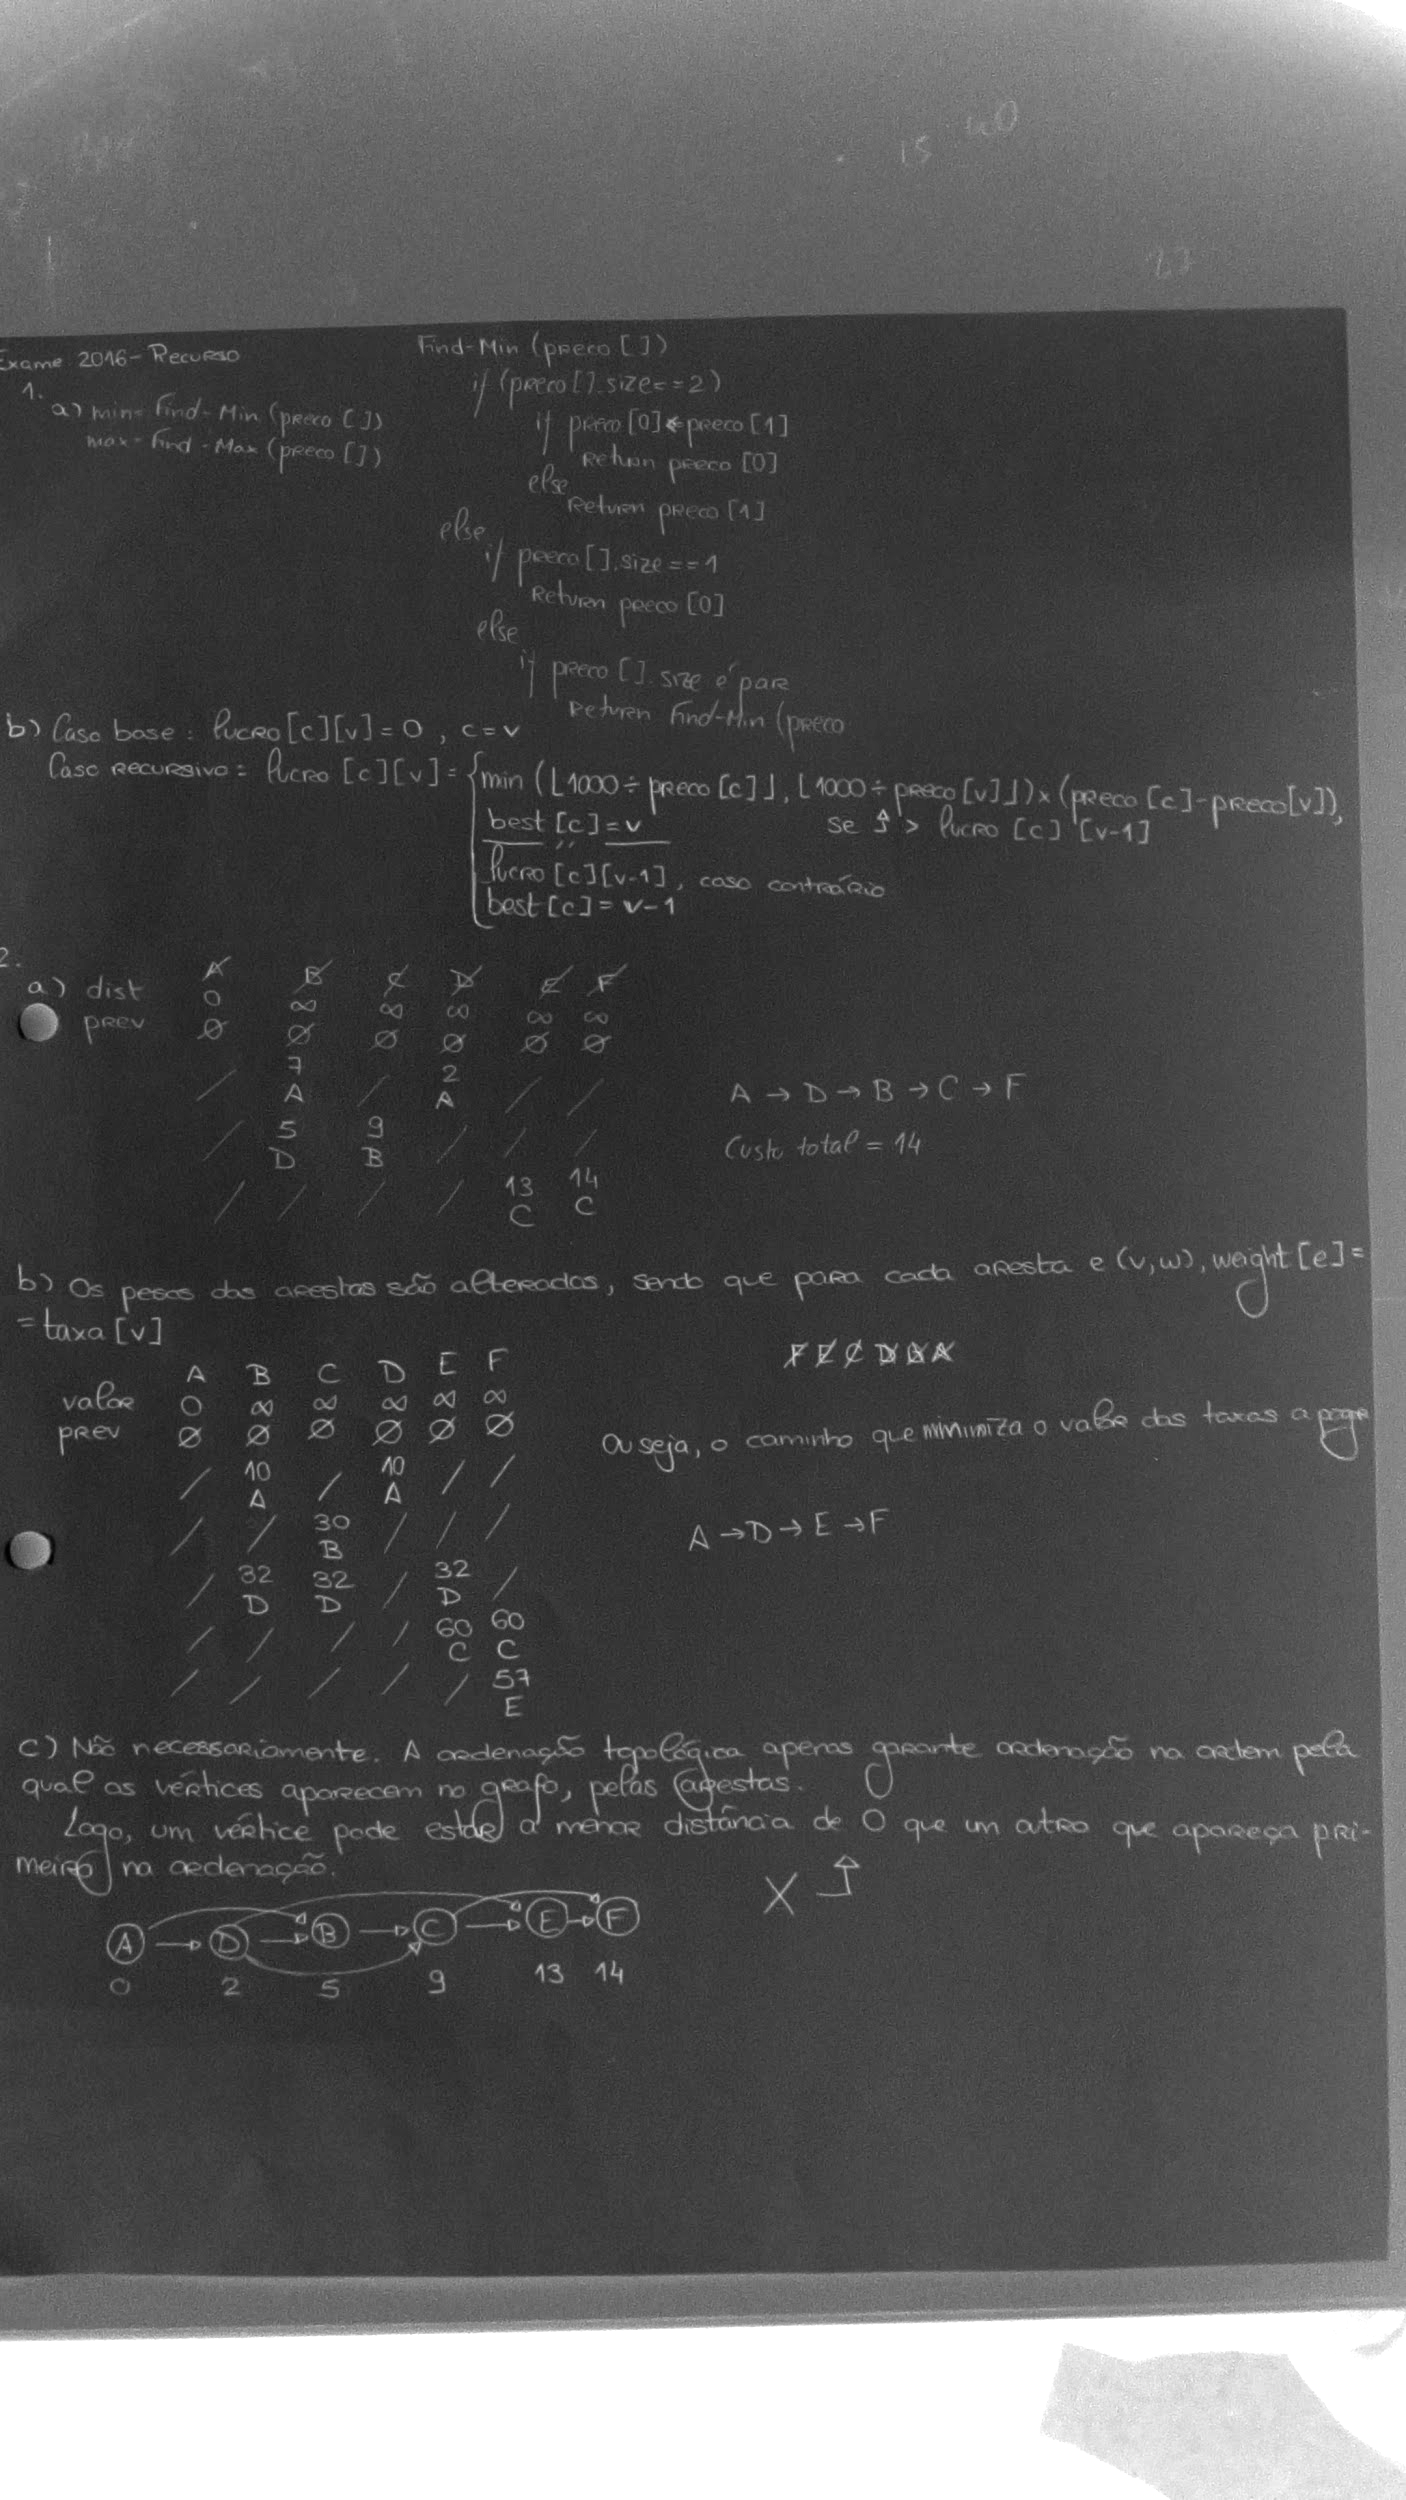 15 40
27
Exame 2016 - Recurso
1.
a) min = Find-Min (preco [])
max = Find-Max (preco [])
Find-Min (preco [])
if (preco[].size == 2)
if preco [0] < preco [1]
return preco [0]
else
return preco [1]
else
if preco [].size == 1
return preco [0]
else
if preco [].size é par
return Find-Min (preco
b) Caso base: lucro [c][v] = 0, c = v
Caso recursivo = lucro [c][v] = { min (⌊1000 ÷ preco [c]⌋, ⌊1000 ÷ preco [v]⌋) × (preco [c] - preco[v]),
best [c] = v se ↑ > lucro [c] [v-1]
lucro [c][v-1], caso contrário
best [c] = v-1
2.
a) dist A B C D E F
0 ∞ ∞ ∞ ∞ ∞
prev ∅ ∅ ∅ ∅ ∅ ∅
/ 7 / 2 / /
A A
/ 5 9 / / /
D B
/ / / / 13 14
C C
A → D → B → C → F
Custo total = 14
b) Os pesos das arestas são alterados, sendo que para cada aresta e (v,w), weight [e] =
= taxa [v]
A B C D E F
valor 0 ∞ ∞ ∞ ∞ ∞
prev ∅ ∅ ∅ ∅ ∅ ∅
/ 10 / 10 / /
A A
/ / 30 / / /
B
/ 32 32 / 32 /
D D D
/ / / / 60 60
C C
/ / / / / 57
E
F E C D B A
Ou seja, o caminho que minimiza o valor das taxas a
A → D → E → F
c) Não necessariamente. A ordenação topológica apenas garante ordenação na ordem pela
qual os vértices aparecem no grafo, pelas arestas.
Logo, um vértice pode estar a menor distância de O que um outro que apareça pri-
meiro na ordenação.
X ↑
A → D → B → C → E → F
0 2 5 9 13 14